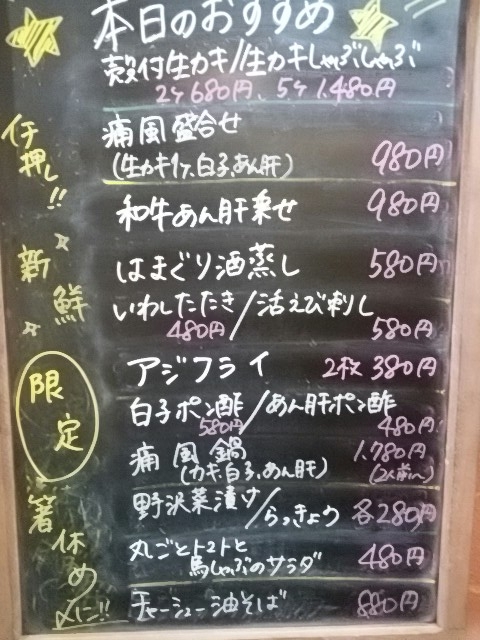 本日のおすすめ
殻付生カキ//生カキしゃぶしゃぶ
2ケ680円、5ケ1,480円
イチ押し!!
痛風盛合せ
(生カキ1ケ、白子、あん肝) 980円
和牛あん肝乗せ 980円
新鮮
はまぐり酒蒸し 580円
いわしたたき/活えび刺し
480円 580円
アジフライ 2枚380円
限定
白子ポン酢/あん肝ポン酢
580円 480円
痛風鍋 1,780円
(カキ、白子、あん肝) (2人前〜)
箸休め
野沢菜漬け/らっきょう 各280円
丸ごとトマトと
馬しゃぶのサラダ 480円
〆に!!
チャーシュー油そば 880円